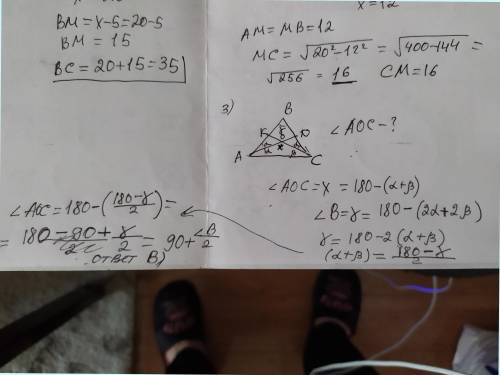 BM = x-5 = 20-5
BM = 15
BC = 20+15 = 35
x = 12
AM = MB = 12
MC = √20²-12² = √400-144 =
√256 = 16 CM = 16
3)
B
K γ N
A α x β C
∠AOC - ?
∠AOC = x = 180-(α+β)
∠B = γ = 180-(2α+2β)
γ = 180-2(α+β)
(α+β) = 180-γ/2
∠AOC = 180-(180-γ/2) =
= 180-90+γ/2 = 90+∠B/2
ответ В)